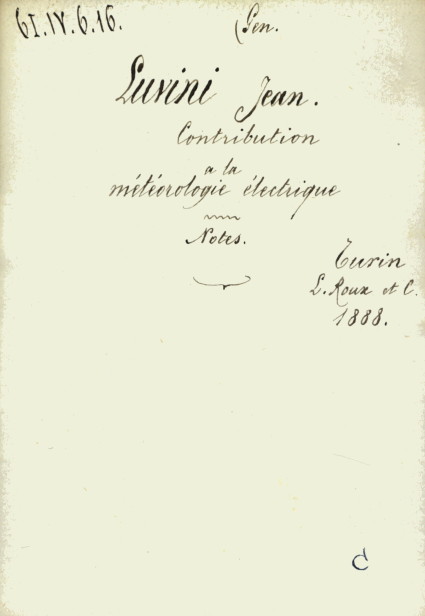 61.IV.6.16.
(Gen.
Luvini Jean.
Contribution
a la
météorologie électrique
Notes.
Turin
L. Roux et C.
1888.
C